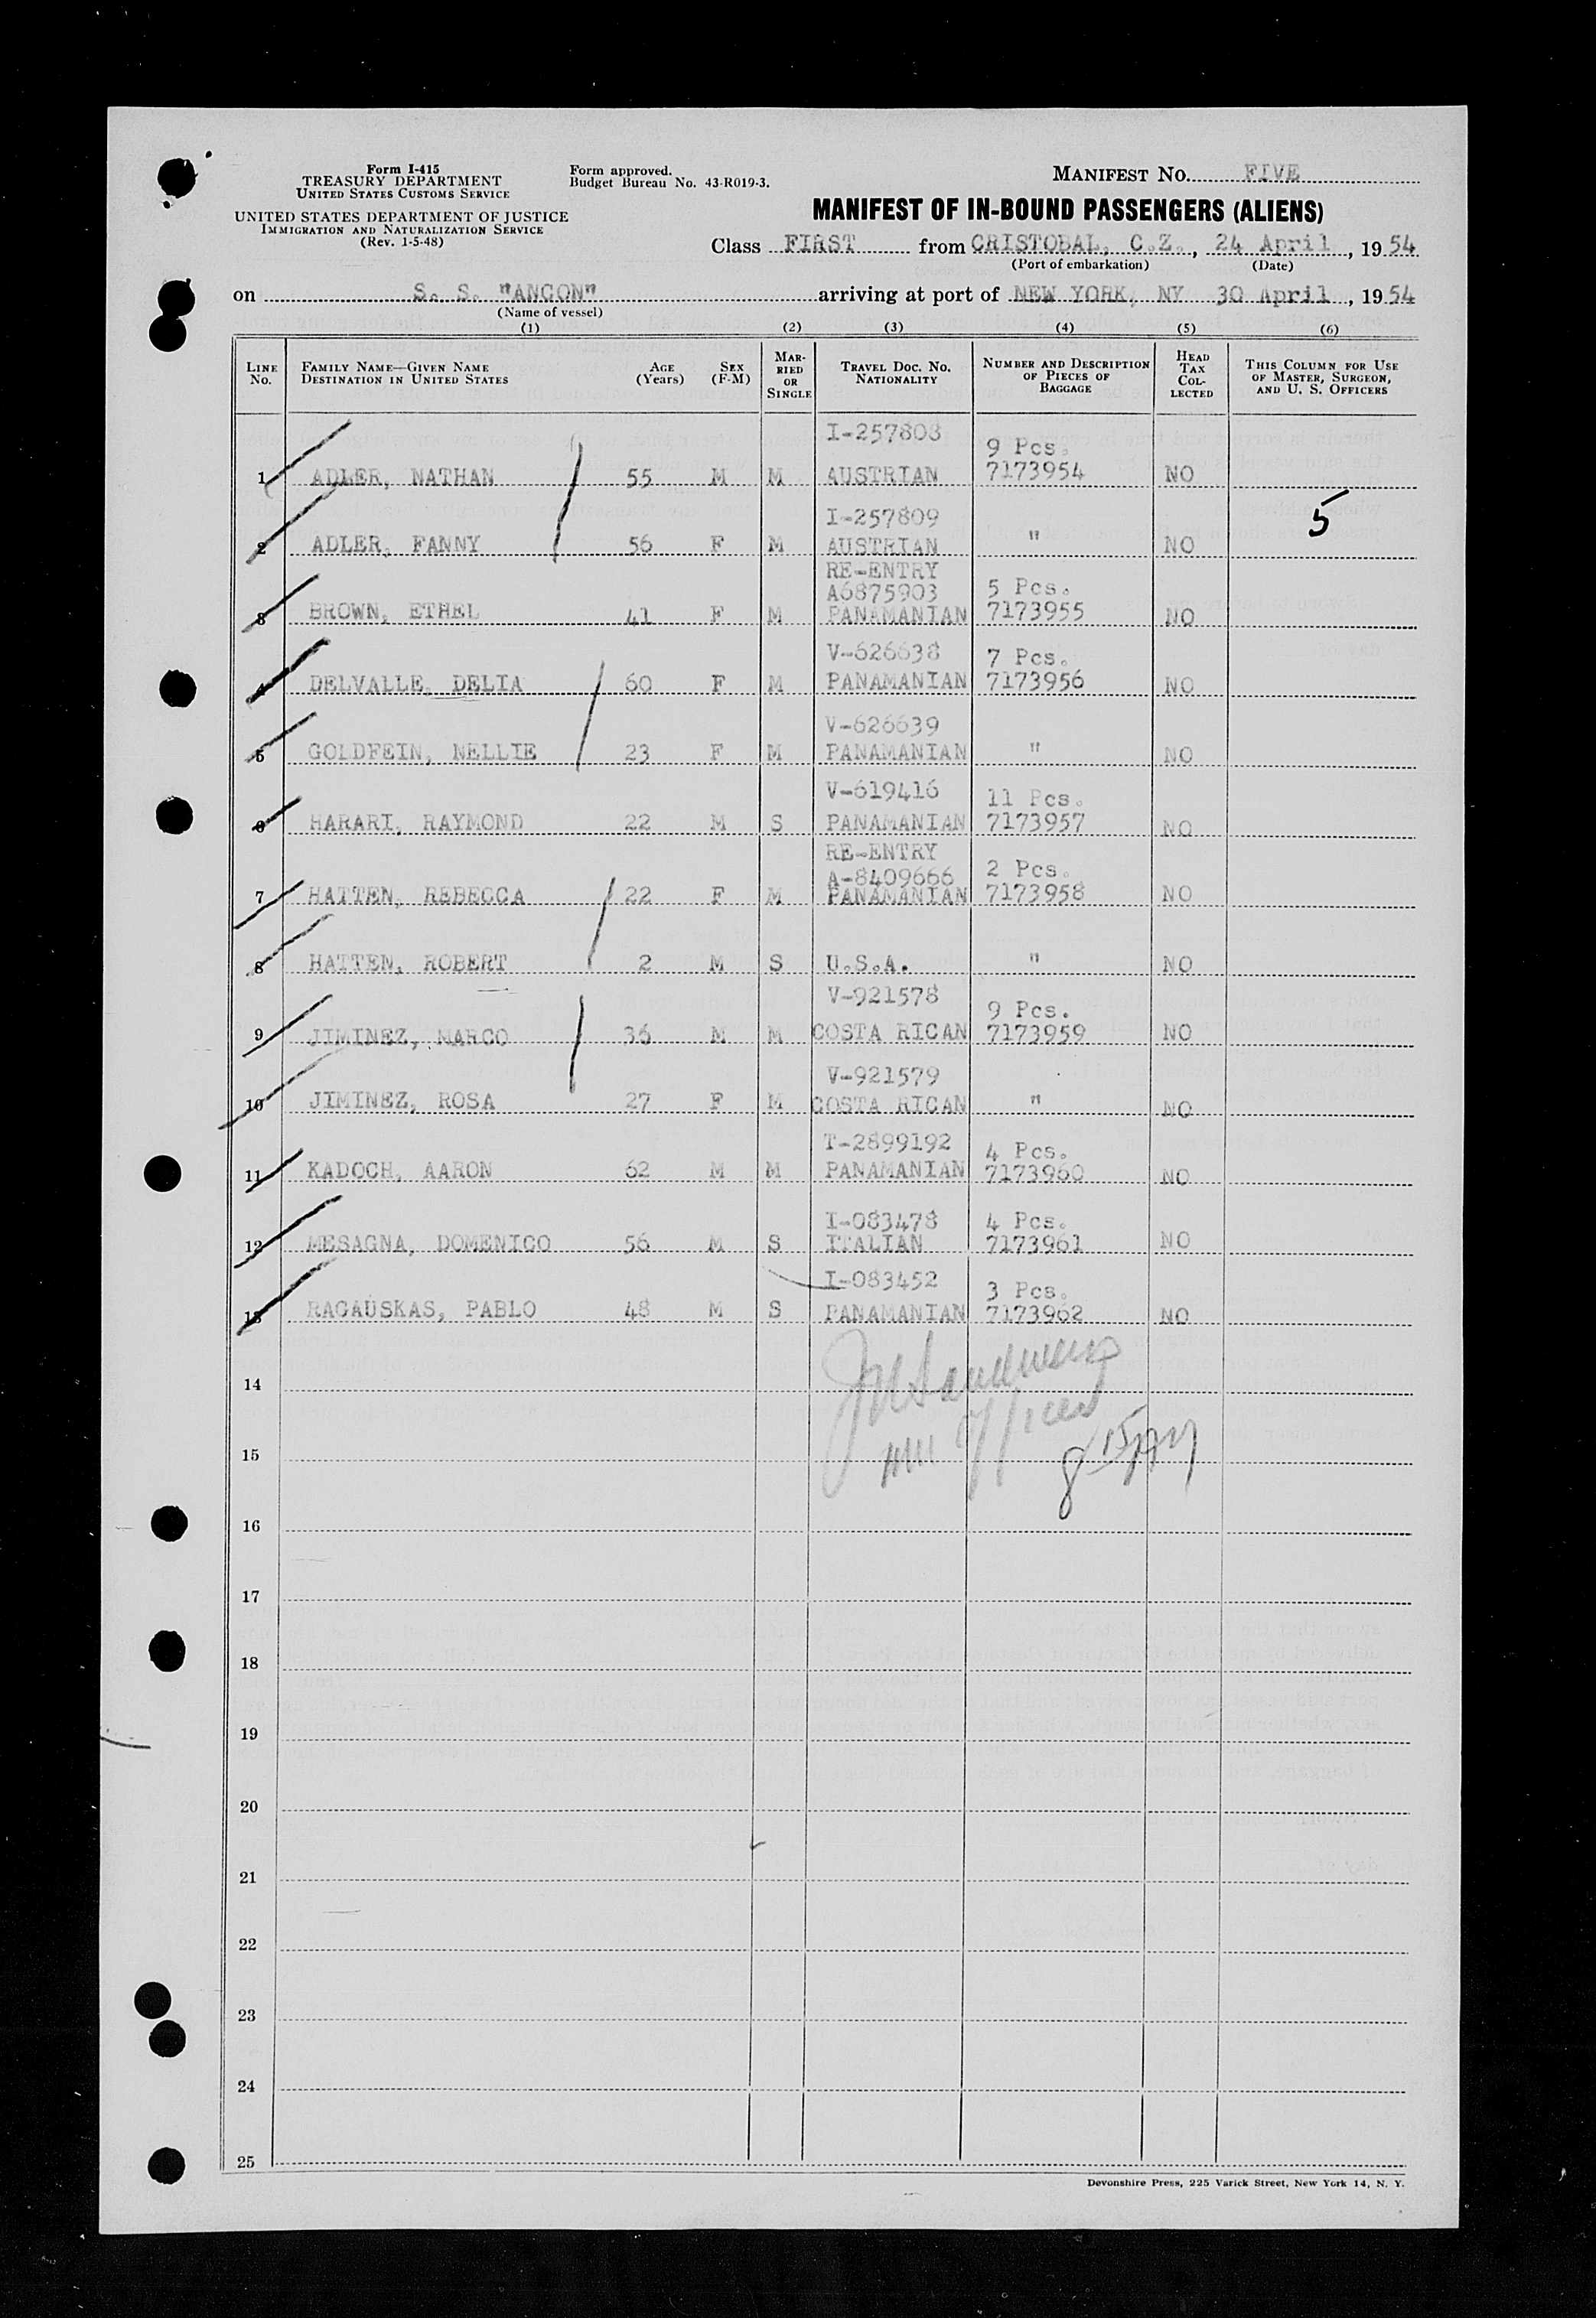 Form I-415
TREASURY DEPARTMENT
UNITED STATES CUSTOMS SERVICE
UNITED STATES DEPARTMENT OF JUSTICE
IMMIGRATION AND NATURALIZATION SERVICE
(Rev. 1-5-48)
Form approved.
Budget Bureau No. 43-R019-3.
MANIFEST NO. FIVE
MANIFEST OF IN-BOUND PASSENGERS (ALIENS)
Class FIRST from CRISTOBAL, C.Z., 24 April, 1954
(Port of embarkation) (Date)
on S. S. "ANCON" arriving at port of NEW YORK, NY 30 April, 1954
(Name of vessel)
(1) (2) (3) (4) (5) (6)
LINE NO. FAMILY NAME—GIVEN NAME DESTINATION IN UNITED STATES AGE (Years) SEX (F-M) MARRIED OR SINGLE TRAVEL DOC. NO. NATIONALITY NUMBER AND DESCRIPTION OF PIECES OF BAGGAGE HEAD TAX COLLECTED THIS COLUMN FOR USE OF MASTER, SURGEON, AND U. S. OFFICERS
I-257808 9 Pcs.
1 ADLER, NATHAN 55 M M AUSTRIAN 7173954 NO
I-257809 5
2 ADLER, FANNY 56 F M AUSTRIAN " NO
RE-ENTRY
A6875903 5 Pcs.
3 BROWN, ETHEL 41 F M PANAMANIAN 7173955 NO
V-626638 7 Pcs.
4 DELVALLE, DELIA 60 F M PANAMANIAN 7173956 NO
V-626639
5 GOLDFEIN, NELLIE 23 F M PANAMANIAN " NO
V-619416 11 Pcs.
6 HARARI, RAYMOND 22 M S PANAMANIAN 7173957 NO
RE-ENTRY
A-8409666 2 Pcs.
7 HATTEN, REBECCA 22 F M PANAMANIAN 7173958 NO
8 HATTEN, ROBERT 2 M S U.S.A. " NO
V-921578 9 Pcs.
9 JIMINEZ, MARCO 36 M M COSTA RICAN 7173959 NO
V-921579
10 JIMINEZ, ROSA 27 F M COSTA RICAN " NO
T-2899192 4 Pcs.
11 KADOCH, AARON 62 M M PANAMANIAN 7173960 NO
I-083478 4 Pcs.
12 MESAGNA, DOMENICO 56 M S ITALIAN 7173961 NO
I-083452 3 Pcs.
13 RAGAUSKAS, PABLO 48 M S PANAMANIAN 7173962 NO
14
15 8 15 AM
16
17
18
19
20
21
22
23
24
25
Devonshire Press, 225 Varick Street, New York 14, N. Y.